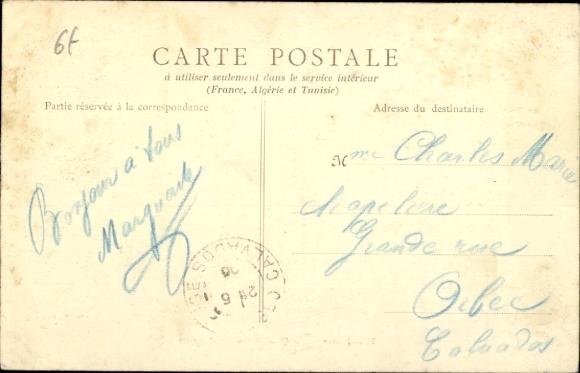 6f
CARTE POSTALE
à utiliser seulement dans le service intérieur
(France, Algérie et Tunisie)
Partie réservée à la correspondance
Adresse du destinataire
Bonjour à tous
Marguerite
Mme Charles Marie
Grande rue
Orbec
Calvados
CALVADOS